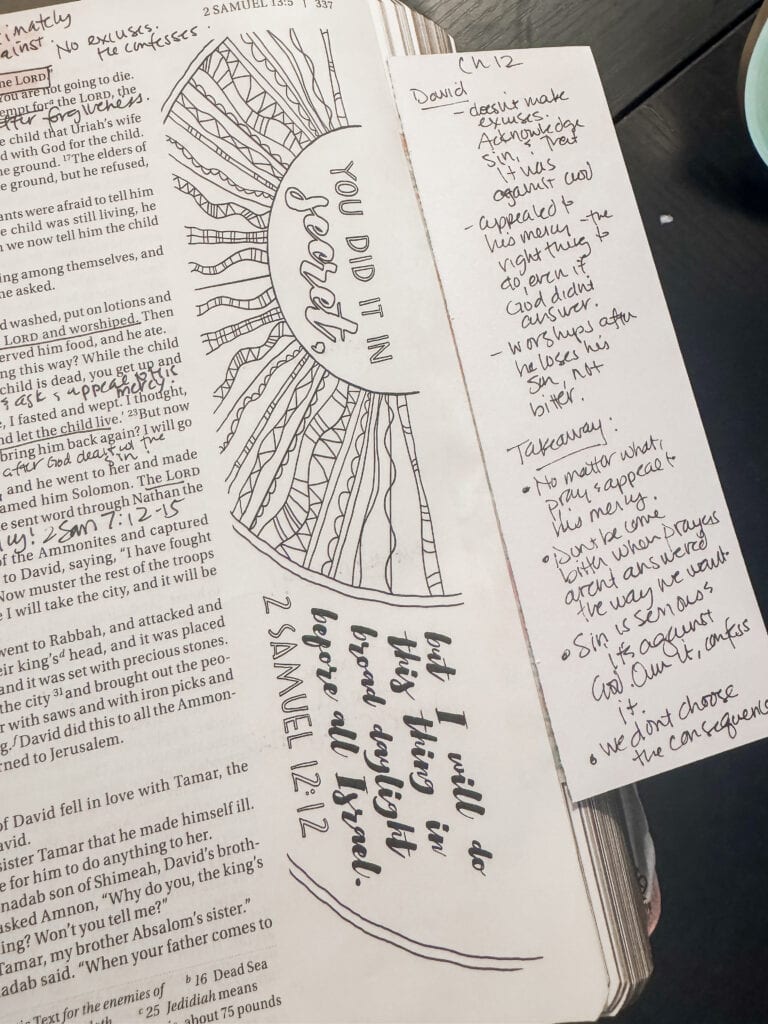 2 SAMUEL 13:5 | 337
No excuses.
He confesses.
the LORD
You are not going to die.
for the LORD, the
after forgiveness.
e child that Uriah's wife
d with God for the child.
he ground. 17The elders of
e ground, but he refused,
ants were afraid to tell him
e child was still living, he
n we now tell him the child
ing among themselves, and
he asked.
d washed, put on lotions and
LORD and worshiped. Then
erved him food, and he ate.
ng this way? While the child
child is dead, you get up and
ask & appeal to His
mercy.
e, I fasted and wept. I thought,
nd let the child live.' 23But now
bring him back again? I will go
after God dealt w/ the
and he went to her and made
amed him Solomon. The LORD
e sent word through Nathan the
2 Sam 7:12-15
of the Ammonites and captured
to David, saying, "I have fought
Now muster the rest of the troops
e I will take the city, and it will be
went to Rabbah, and attacked and
eir king'sd head, and it was placed
and it was set with precious stones.
the city 31and brought out the peo-
r with saws and with iron picks and
g.f David did this to all the Ammon-
rned to Jerusalem.
of David fell in love with Tamar, the
avid.
sister Tamar that he made himself ill.
e for him to do anything to her.
nadab son of Shimeah, David's broth-
asked Amnon, "Why do you, the king's
ing? Won't you tell me?"
Tamar, my brother Absalom's sister."
adab said. "When your father comes to
Text for the enemies of
b 16 Dead Sea
c 25 Jedidiah means
about 75 pounds
YOU DID IT IN
secret,
but I will do
this thing in
broad daylight
before all Israel.
2 SAMUEL 12:12
Ch 12
David
- doesn't make
excuses.
Acknowledge
Sin, & that
it was
against God
- appealed to
his mercy - the
right thing to
do, even if
God didn't
answer.
- worships after
he loses his
son, not
bitter.
Takeaway:
• No matter what,
pray & appeal to
his mercy.
• Don't become
bitter when prayers
arent answered
the way we want
• Sin is serious
its against
God. Own it, confess
it.
• we dont choose
the consequence